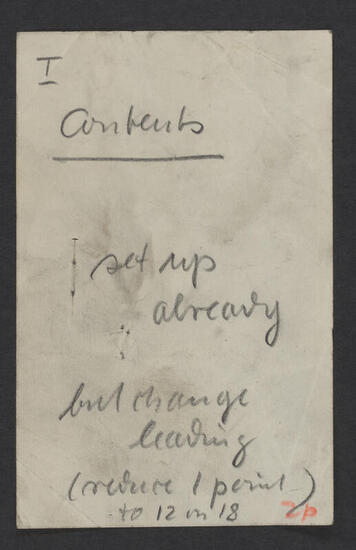 I
Contents
set up
already
but change
leading
(reduce 1 point)
to 12 on 18
2p